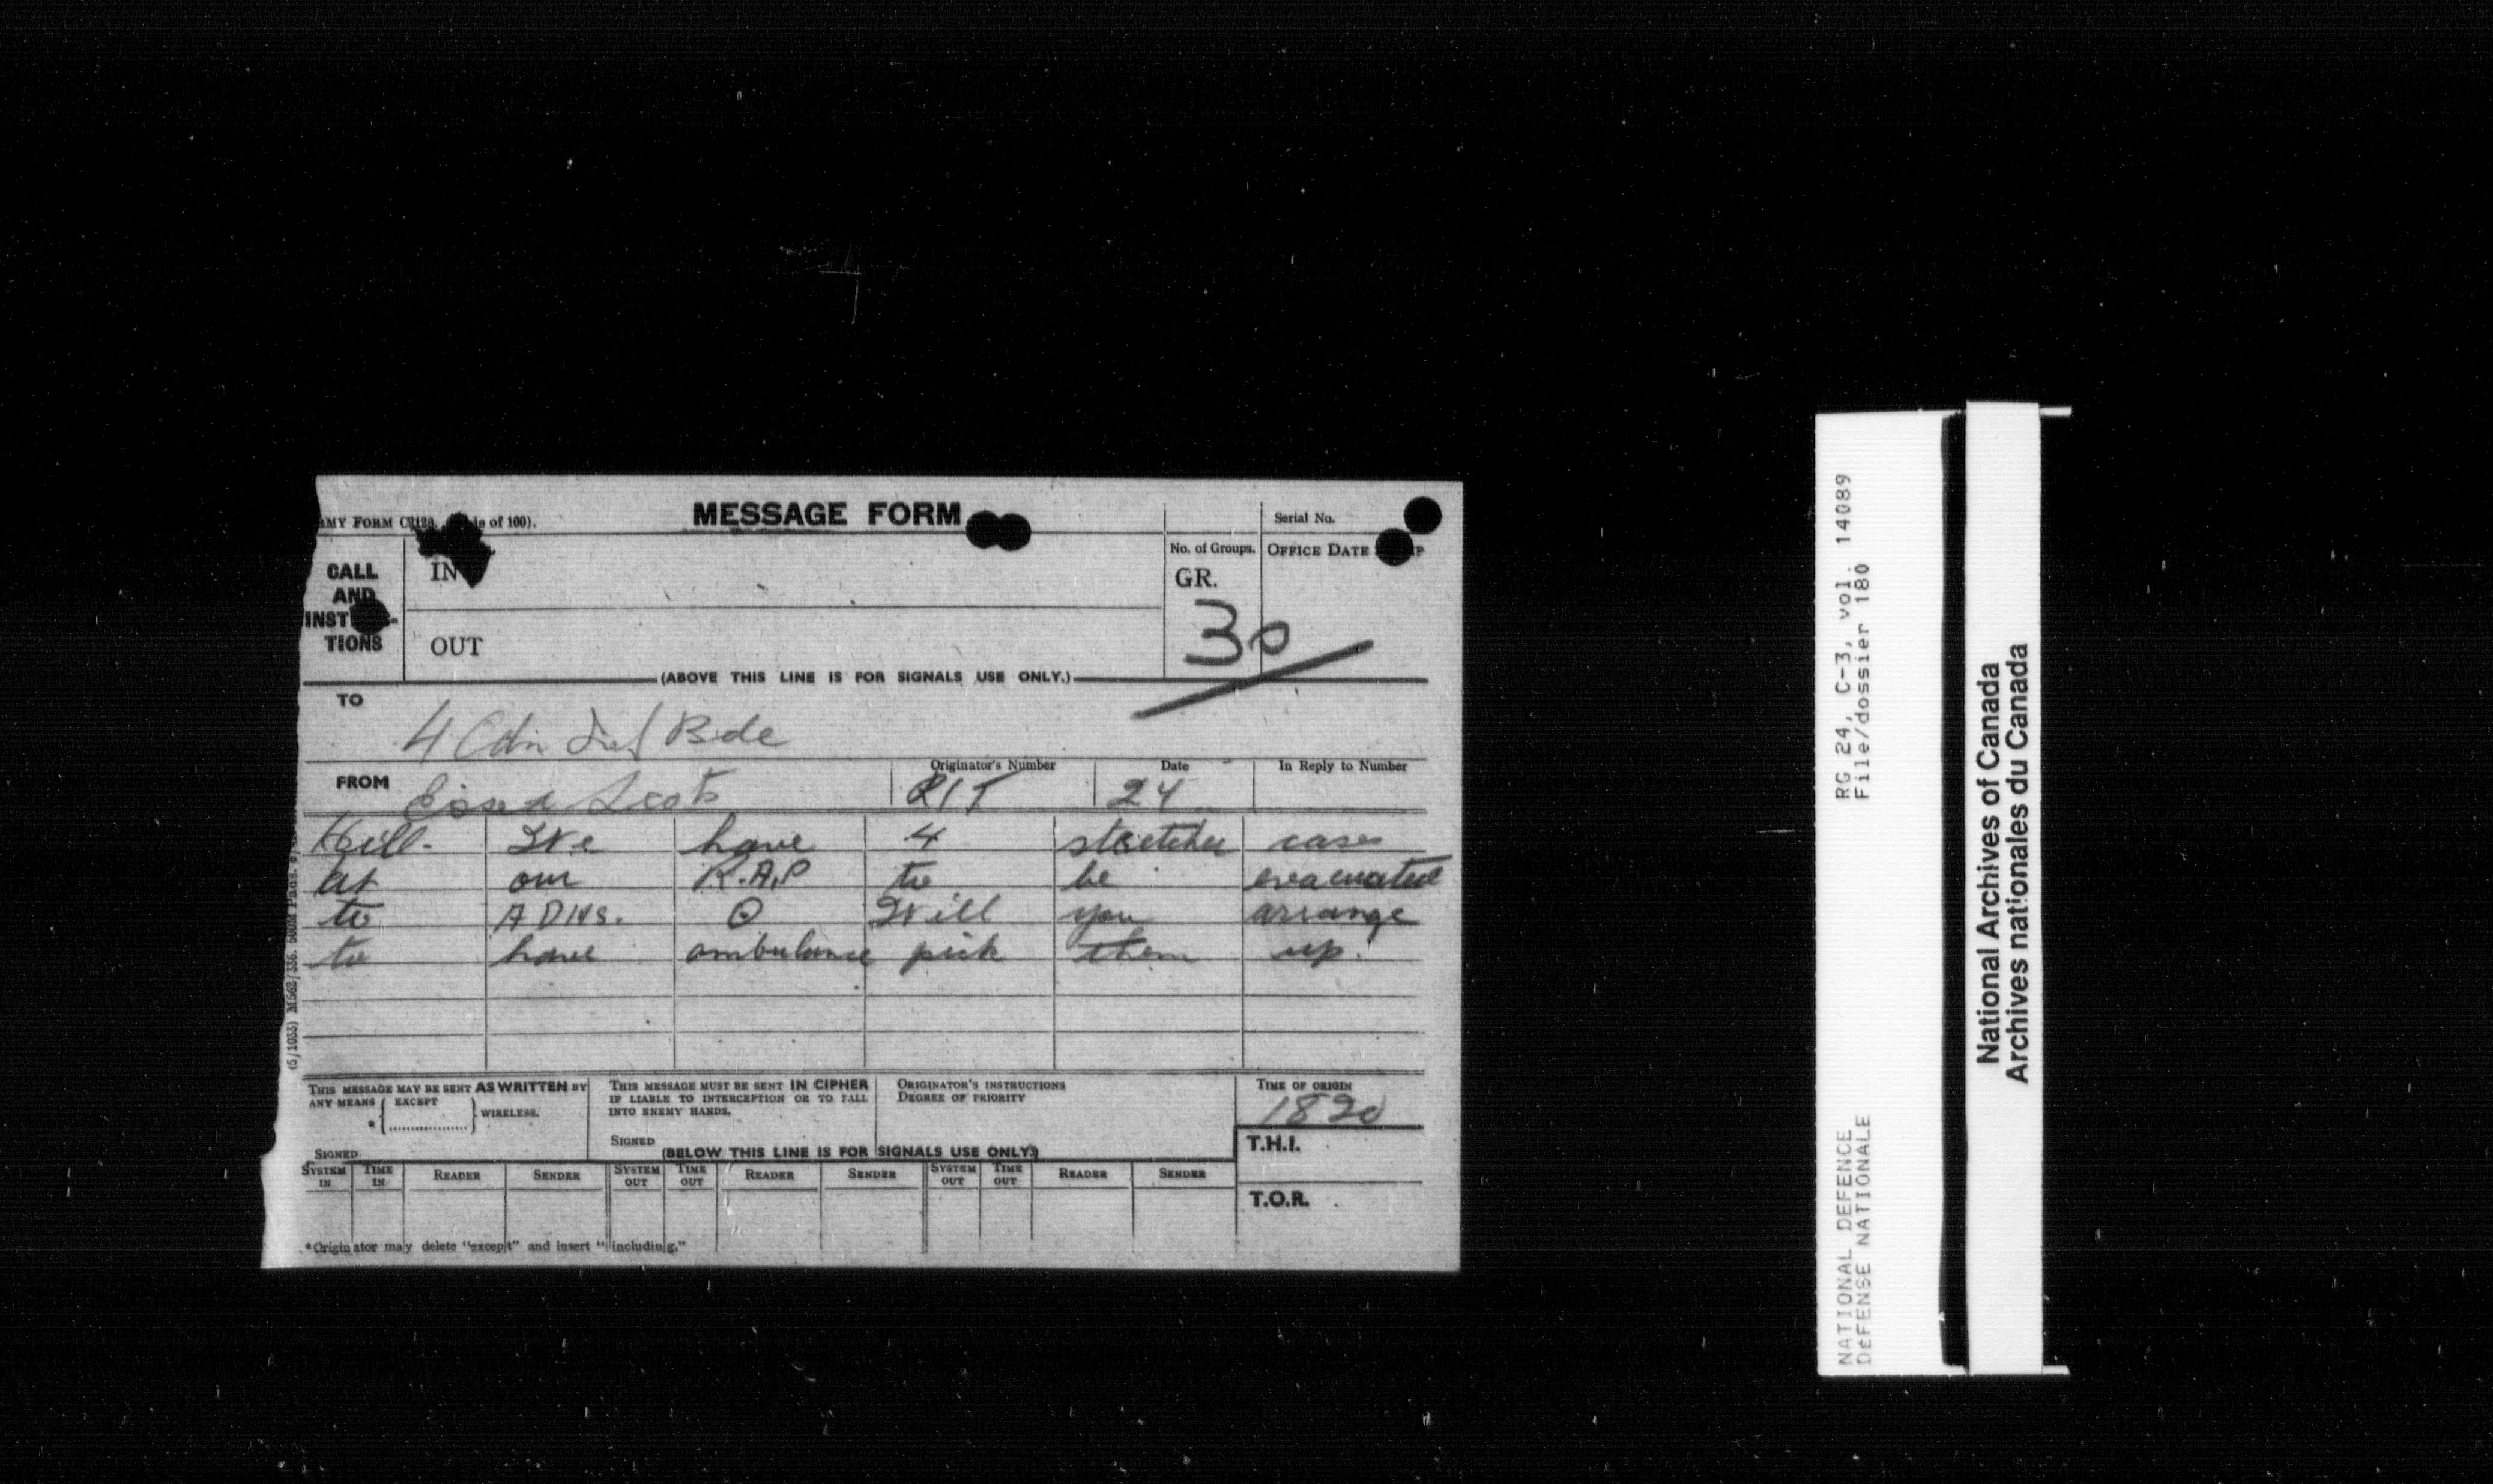 MESSAGE FORM
Serial No.
ARMY FORM C2128. of 100).
No. of Groups. OFFICE DATE
CALL AND TIONS
IN
GR.
30
OUT
(ABOVE THIS LINE IS FOR SIGNALS USE ONLY.)
TO
4 Cdn Inf Bde
FROM Essex Scots
Originator's Number
Date 24
In Reply to Number
We have 4 stretcher cases
at our R.A.P to be evacuated
to ADMS. Will you arrange
to have ambulance pick them up.
THIS MESSAGE MAY BE SENT AS WRITTEN BY
ANY MEANS { EXCEPT } WIRELESS.
* {...................}
SIGNED
THIS MESSAGE MUST BE SENT IN CIPHER
IF LIABLE TO INTERCEPTION OR TO FALL
INTO ENEMY HANDS.
SIGNED
ORIGINATOR'S INSTRUCTIONS
DEGREE OF PRIORITY
TIME OF ORIGIN
1820
(BELOW THIS LINE IS FOR SIGNALS USE ONLY)
T.H.I.
SYSTEM IN TIME IN READER SENDER SYSTEM OUT TIME OUT READER SENDER SYSTEM OUT TIME OUT READER SENDER
T.O.R.
*Originator may delete "except" and insert "including."
RG 24, C-3, vol. 14089
File/dossier 180
NATIONAL DEFENCE
DéFENSE NATIONALE
National Archives of Canada
Archives nationales du Canada